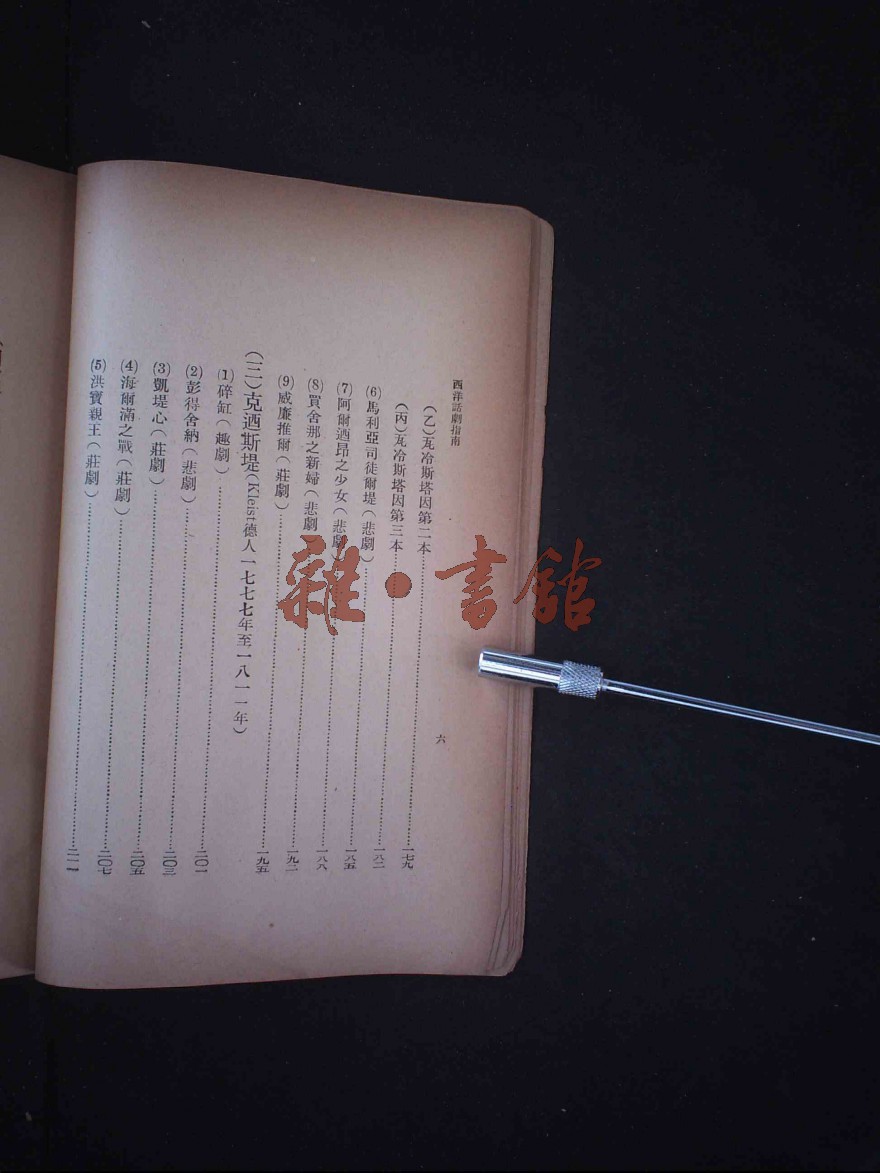 西洋話劇指南
六
(乙)瓦冷斯塔因第二本……一七九
(丙)瓦冷斯塔因第三本……一八二
(6)馬利亞司徒爾堤(悲劇)……一八五
(7)阿爾迺昂之少女(悲劇)……一八八
(8)買舍那之新婦(悲劇)……一九二
(9)威廉推爾(莊劇)……一九五
(三)克迺斯堤(Kleist德人一七七七年至一八一一年)
(1)碎缸(趣劇)……二〇一
(2)彭得舍納(悲劇)……二〇三
(3)凱堤心(莊劇)……二〇五
(4)海爾滿之戰(莊劇)……二〇七
(5)洪寶親王(莊劇)……二一一
雜·書館